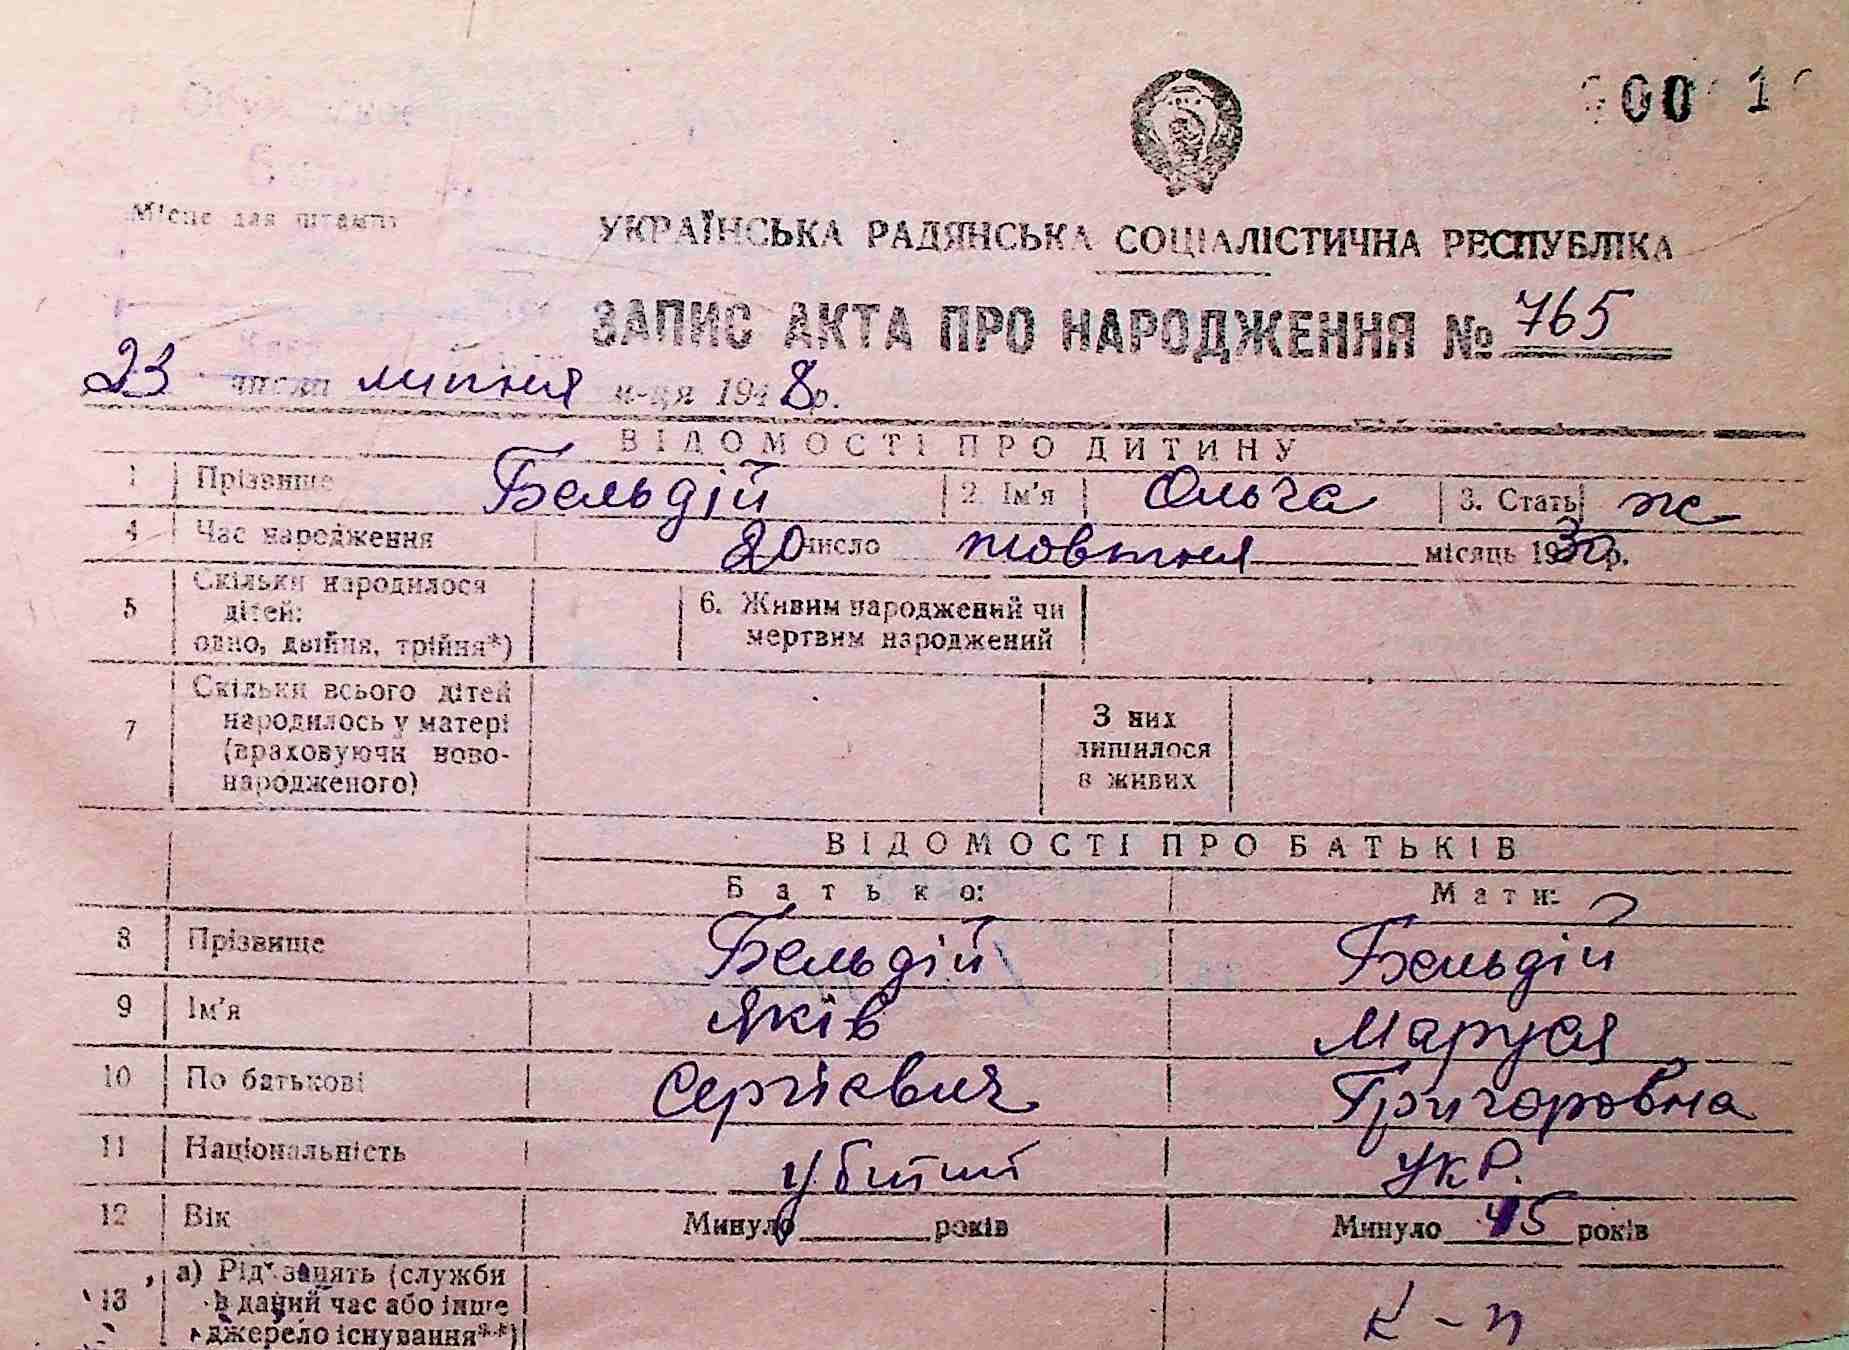 Місце для штампу
УКРАЇНСЬКА РАДЯНСЬКА СОЦІАЛІСТИЧНА РЕСПУБЛІКА
ЗАПИС АКТА ПРО НАРОДЖЕННЯ № 765
23 числа липня м-ця 1948р.
ВІДОМОСТІ ПРО ДИТИНУ
1 Прізвище Бельдій 2. Ім'я Ольга 3. Стать ж
4 Час народження 20 число жовтня місяць 1930р.
5 Скільки народилося дітей: одно, двійня, трійня*) 6. Живим народжений чи мертвим народжений
7 Скільки всього дітей народилось у матері (враховуючи ново-народженого) З них лишилося в живих
ВІДОМОСТІ ПРО БАТЬКІВ
Батько: Мати:
8 Прізвище Бельдій Бельдій
9 Ім'я Яків Маруся
10 По батькові Сергієвич Григоровна
11 Національність убитий укр.
12 Вік Минуло років Минуло 45 років
13 а) Рід занять (служби в даний час або інше джерело існування**) к-п